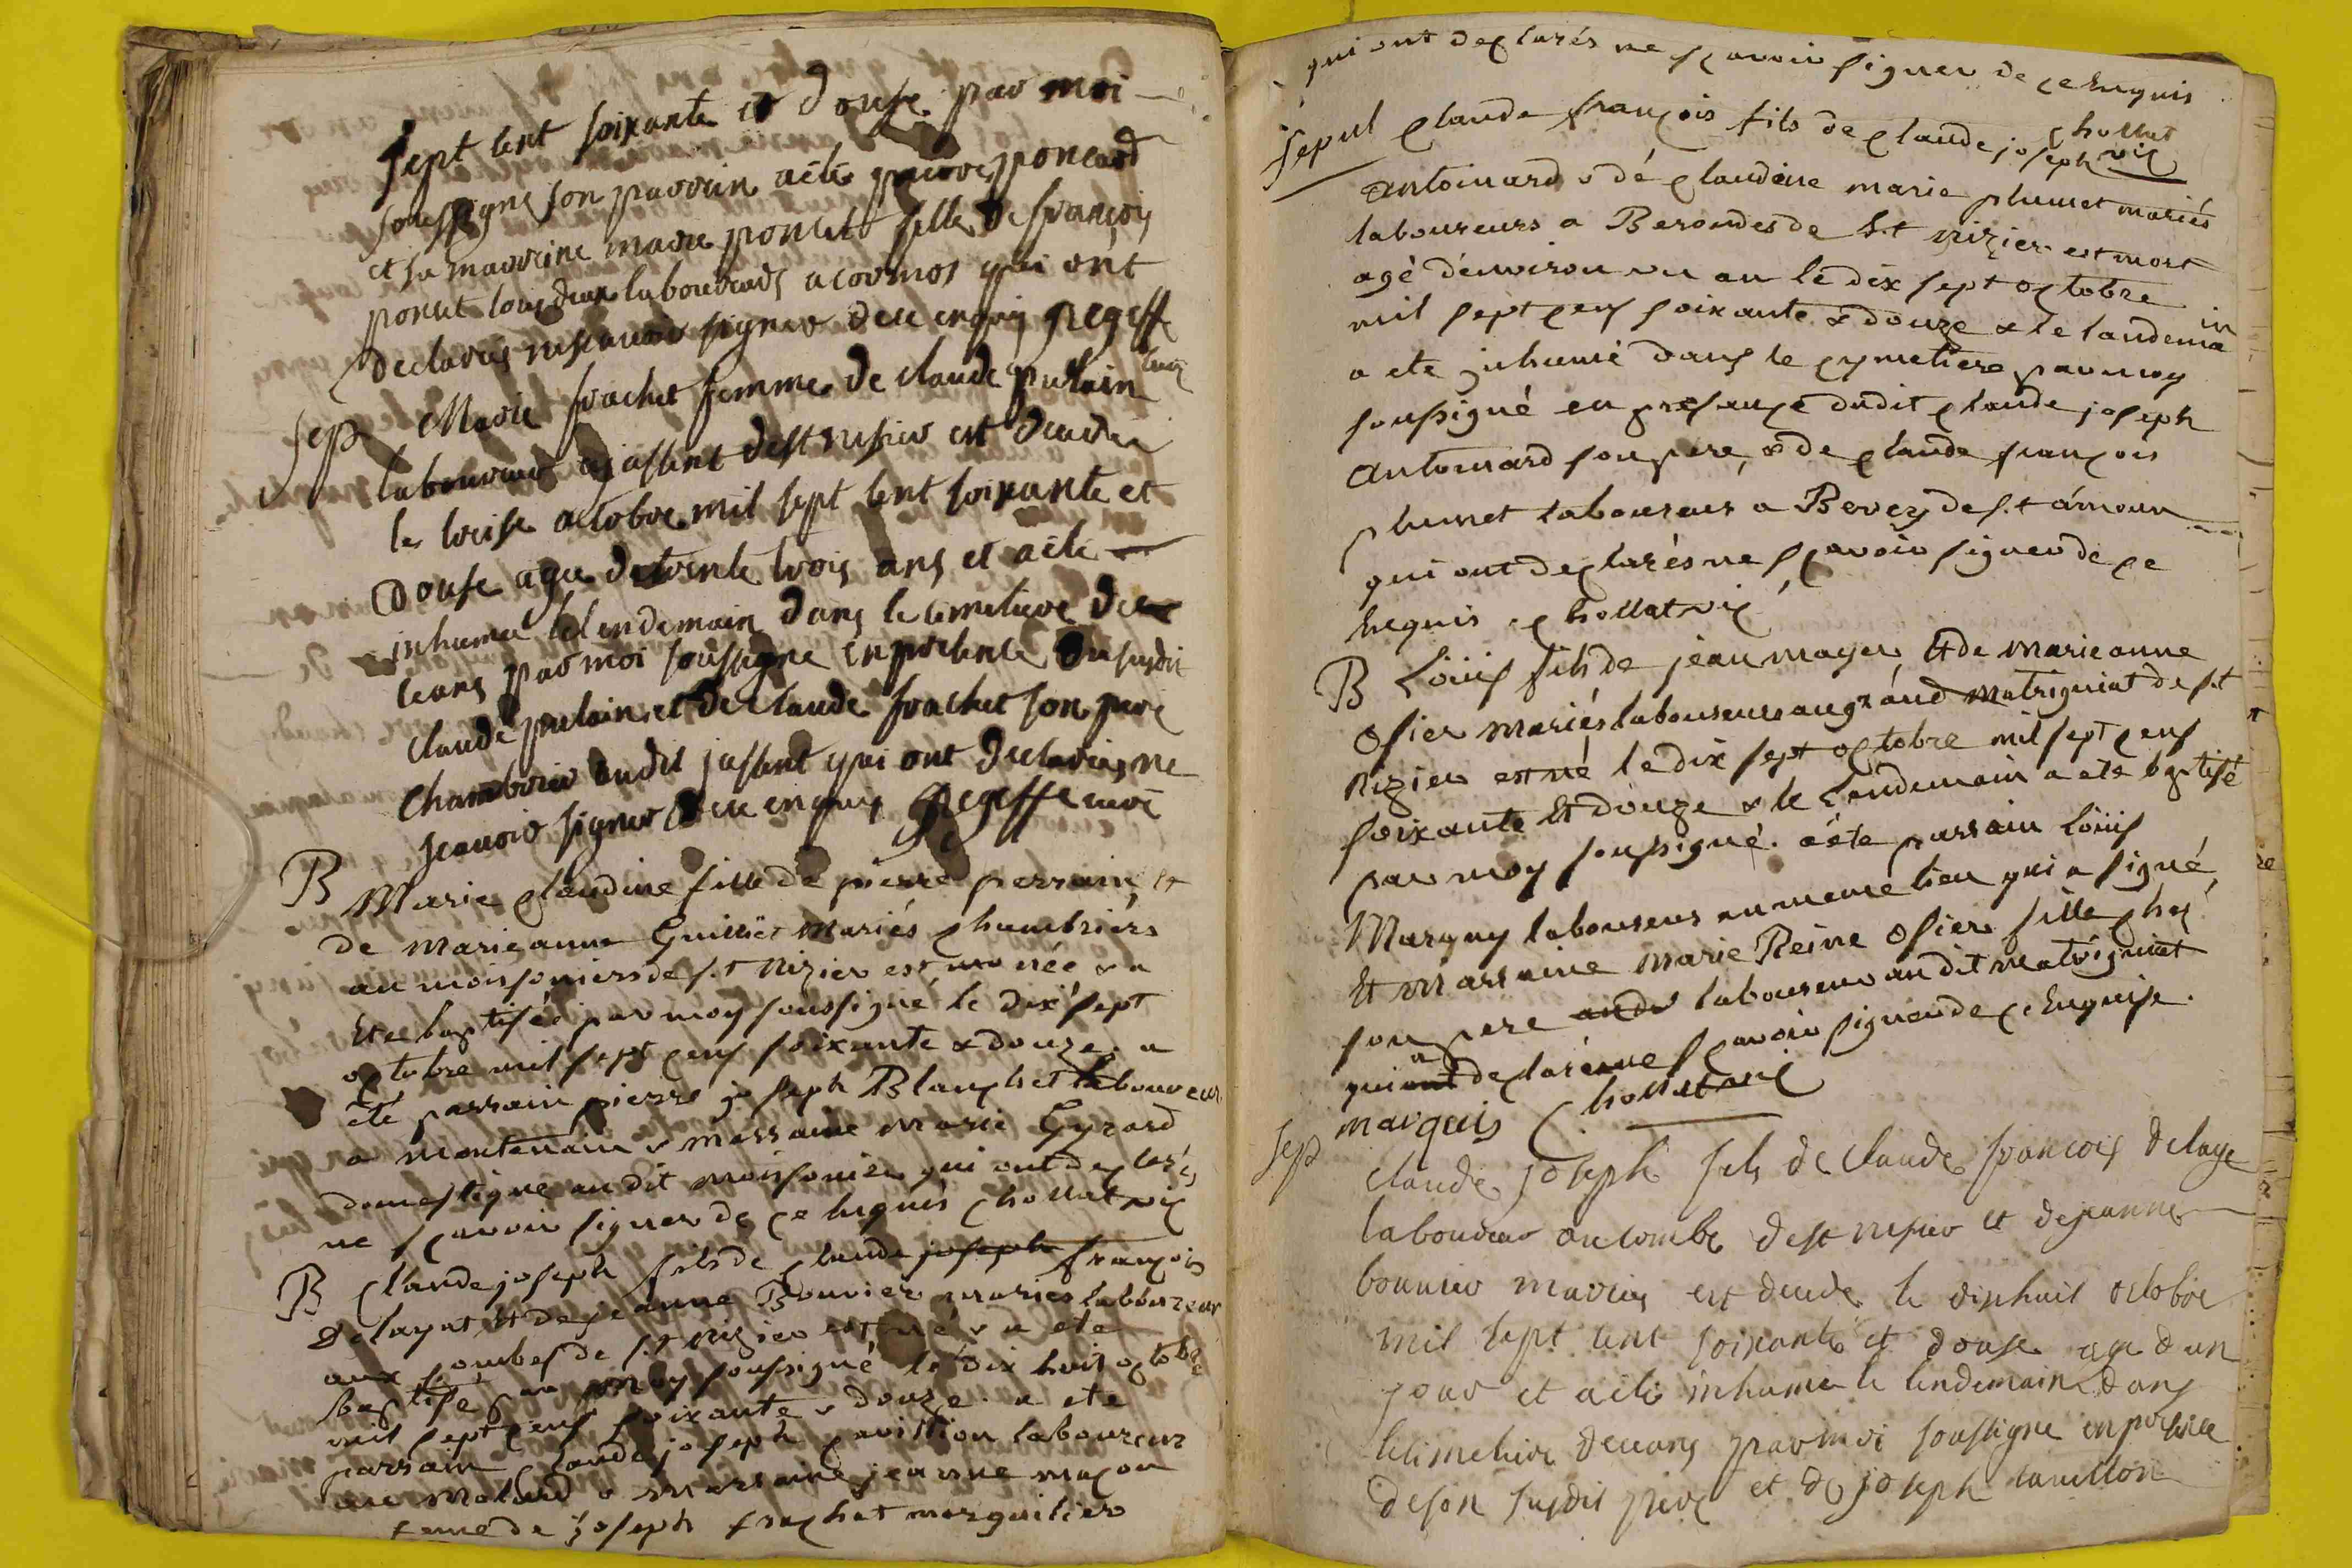 sept cent soixante et douse par moi
soussigne son parrain aété pierre poncard
et sa marraine marie poncet fille de françois
poncet tous deux laboureurs a cormos qui ont
declarés ne scavoir signer de ce enquis gregeff
curé
sep Marie frachet femme de claude pulain
laboureur a jassent de st nisier est decedee
le treise octobre mil sept cent soixante et
douse agee de trente trois ans et aété
inhumee le lendemain dans le cimetiere de
ceans par moi soussigne en presence du susdit
claude pulain et de claude frachet son pere
chambrier audit jassent qui ont declarés ne
scavoir signer de ce enquis gregeffe curé
B Marie claudine fille de pierre perrain et
de marieanne Guillet mariés chambriers
au moissonniers de s.t nizier est née & a
ete baptisée par moy soussigné le dix sept
octobre mil sept cens soixante & douze. a
eté parrain pierre joseph Blanchet laboureur
a montenain & marraine marie Gyrard
domestique au dit moissonier qui ont declarés
ne scavoir signer de ce enquis chollat vic
B Claude joseph fils de claude joseph françois
Delayat et de jeanne Bouvier mariés laboureur
aux combes de s.t nizier est né & a ete
baptisé par moy soussigné le dix huit octobre
mil sept cens soixante & douze. a ete
parrain claude joseph cavillion laboureur
au molard & marraine jeanne maçon
femme de joseph frachet marguilier
qui ont declarés ne scavoir signer de ce enquis
chollat
sepul Claude françois fils de claude joseph vic
antoinard & de claudine marie plumet mariés
laboureurs a Berondes de s.t nizier est mort
agé d'environ un an le dix sept octobre
mil sept cens soixante & douze & le landemain
a ete inhumé dans le cymetiere par moy
soussigné en presence dudit claude joseph
antoinard son pere, & de claude françois
plumet laboureur a Bevey de s.t amour
qui ont declarés ne scavoir signer de ce
enquis chollat vic
B Loüis fils de jean mayer et de marieanne
ofier mariés laboureurs au grand matrignat de s.t
Nizier est né le dix sept octobre mil sept cens
soixante et douze & le lendemain a eté baptisé
par moy soussigné. a ete parrain loüis
Marguy laboureur au meme lieu qui a signé,
et marraine marie Reine ofier fille chez
son pere laboureur au dit matrignat
qui a declaré ne scavoir signer de ce enquise.
marquis Chollat vic
sep claude joseph fils de claude francois delaye
laboureur au combe de st nisier et de jeanne
bouvier mariés est decede le dixhuit octobre
mil sept cent soixante et douse age d un
jour et aété inhume le lendemain dans
le cimetiere de ceans par moi soussigne en presence
de son susdit pere et de joseph cavillon